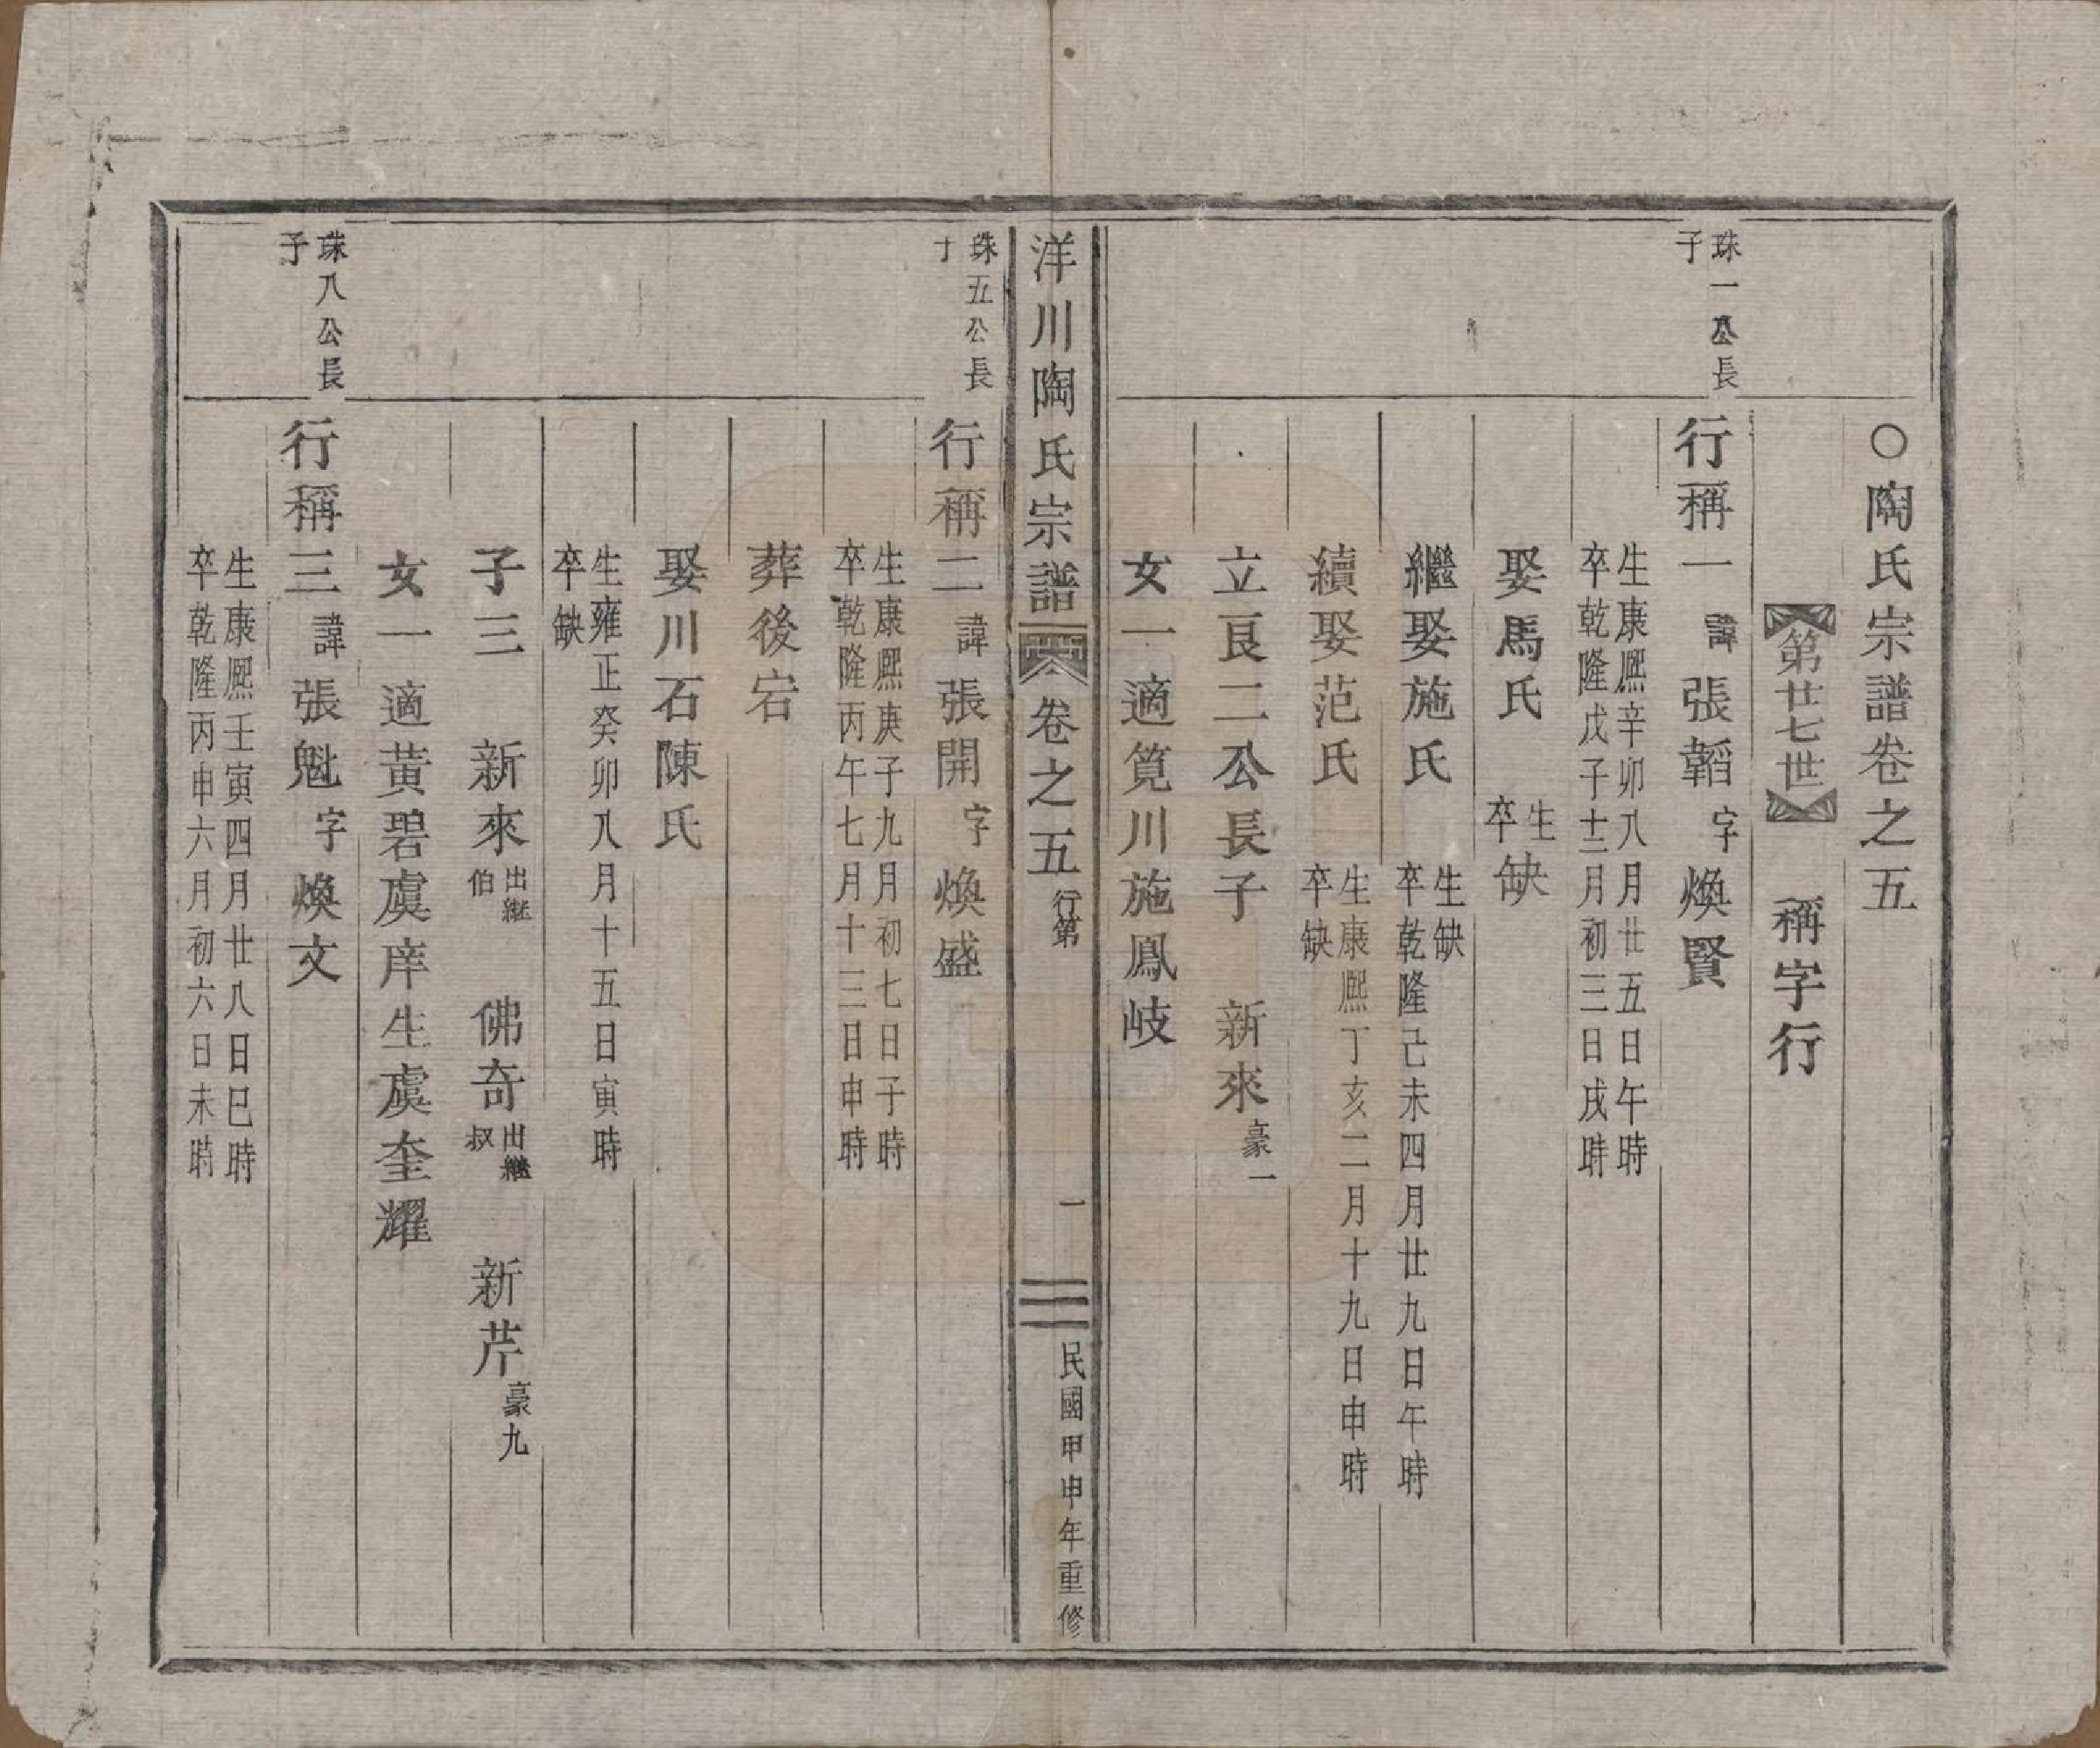 ○陶氏宗譜卷之五
第廿七世 稱字行
珠一公長
子
行稱一 諱張韜 字煥賢
生康熈辛卯八月廿五日午時
卒乾隆戊子十二月初三日戌時
娶馬氏 生
卒缺
繼娶施氏 生缺
卒乾隆己未四月廿九日午時
續娶范氏 生康熈丁亥二月十九日申時
卒缺
立艮二公長子 新來 豪一
女一適筧川施鳳岐
洋川陶氏宗譜 卷之五 行第 一 民國甲申年重修
珠五公長
子
行稱二 諱張開 字煥盛
生康熈庚子九月初七日子時
卒乾隆丙午七月十三日申時
葬後宕
娶川石陳氏
生雍正癸卯八月十五日寅時
卒缺
子三 新來 出継
伯 佛奇 出繼
叔 新芹 豪九
女一適黃碧虞庠生虞奎耀
珠八公長
子
行稱三 諱張魁 字煥文
生康熈壬寅四月廿八日巳時
卒乾隆丙申六月初六日未時